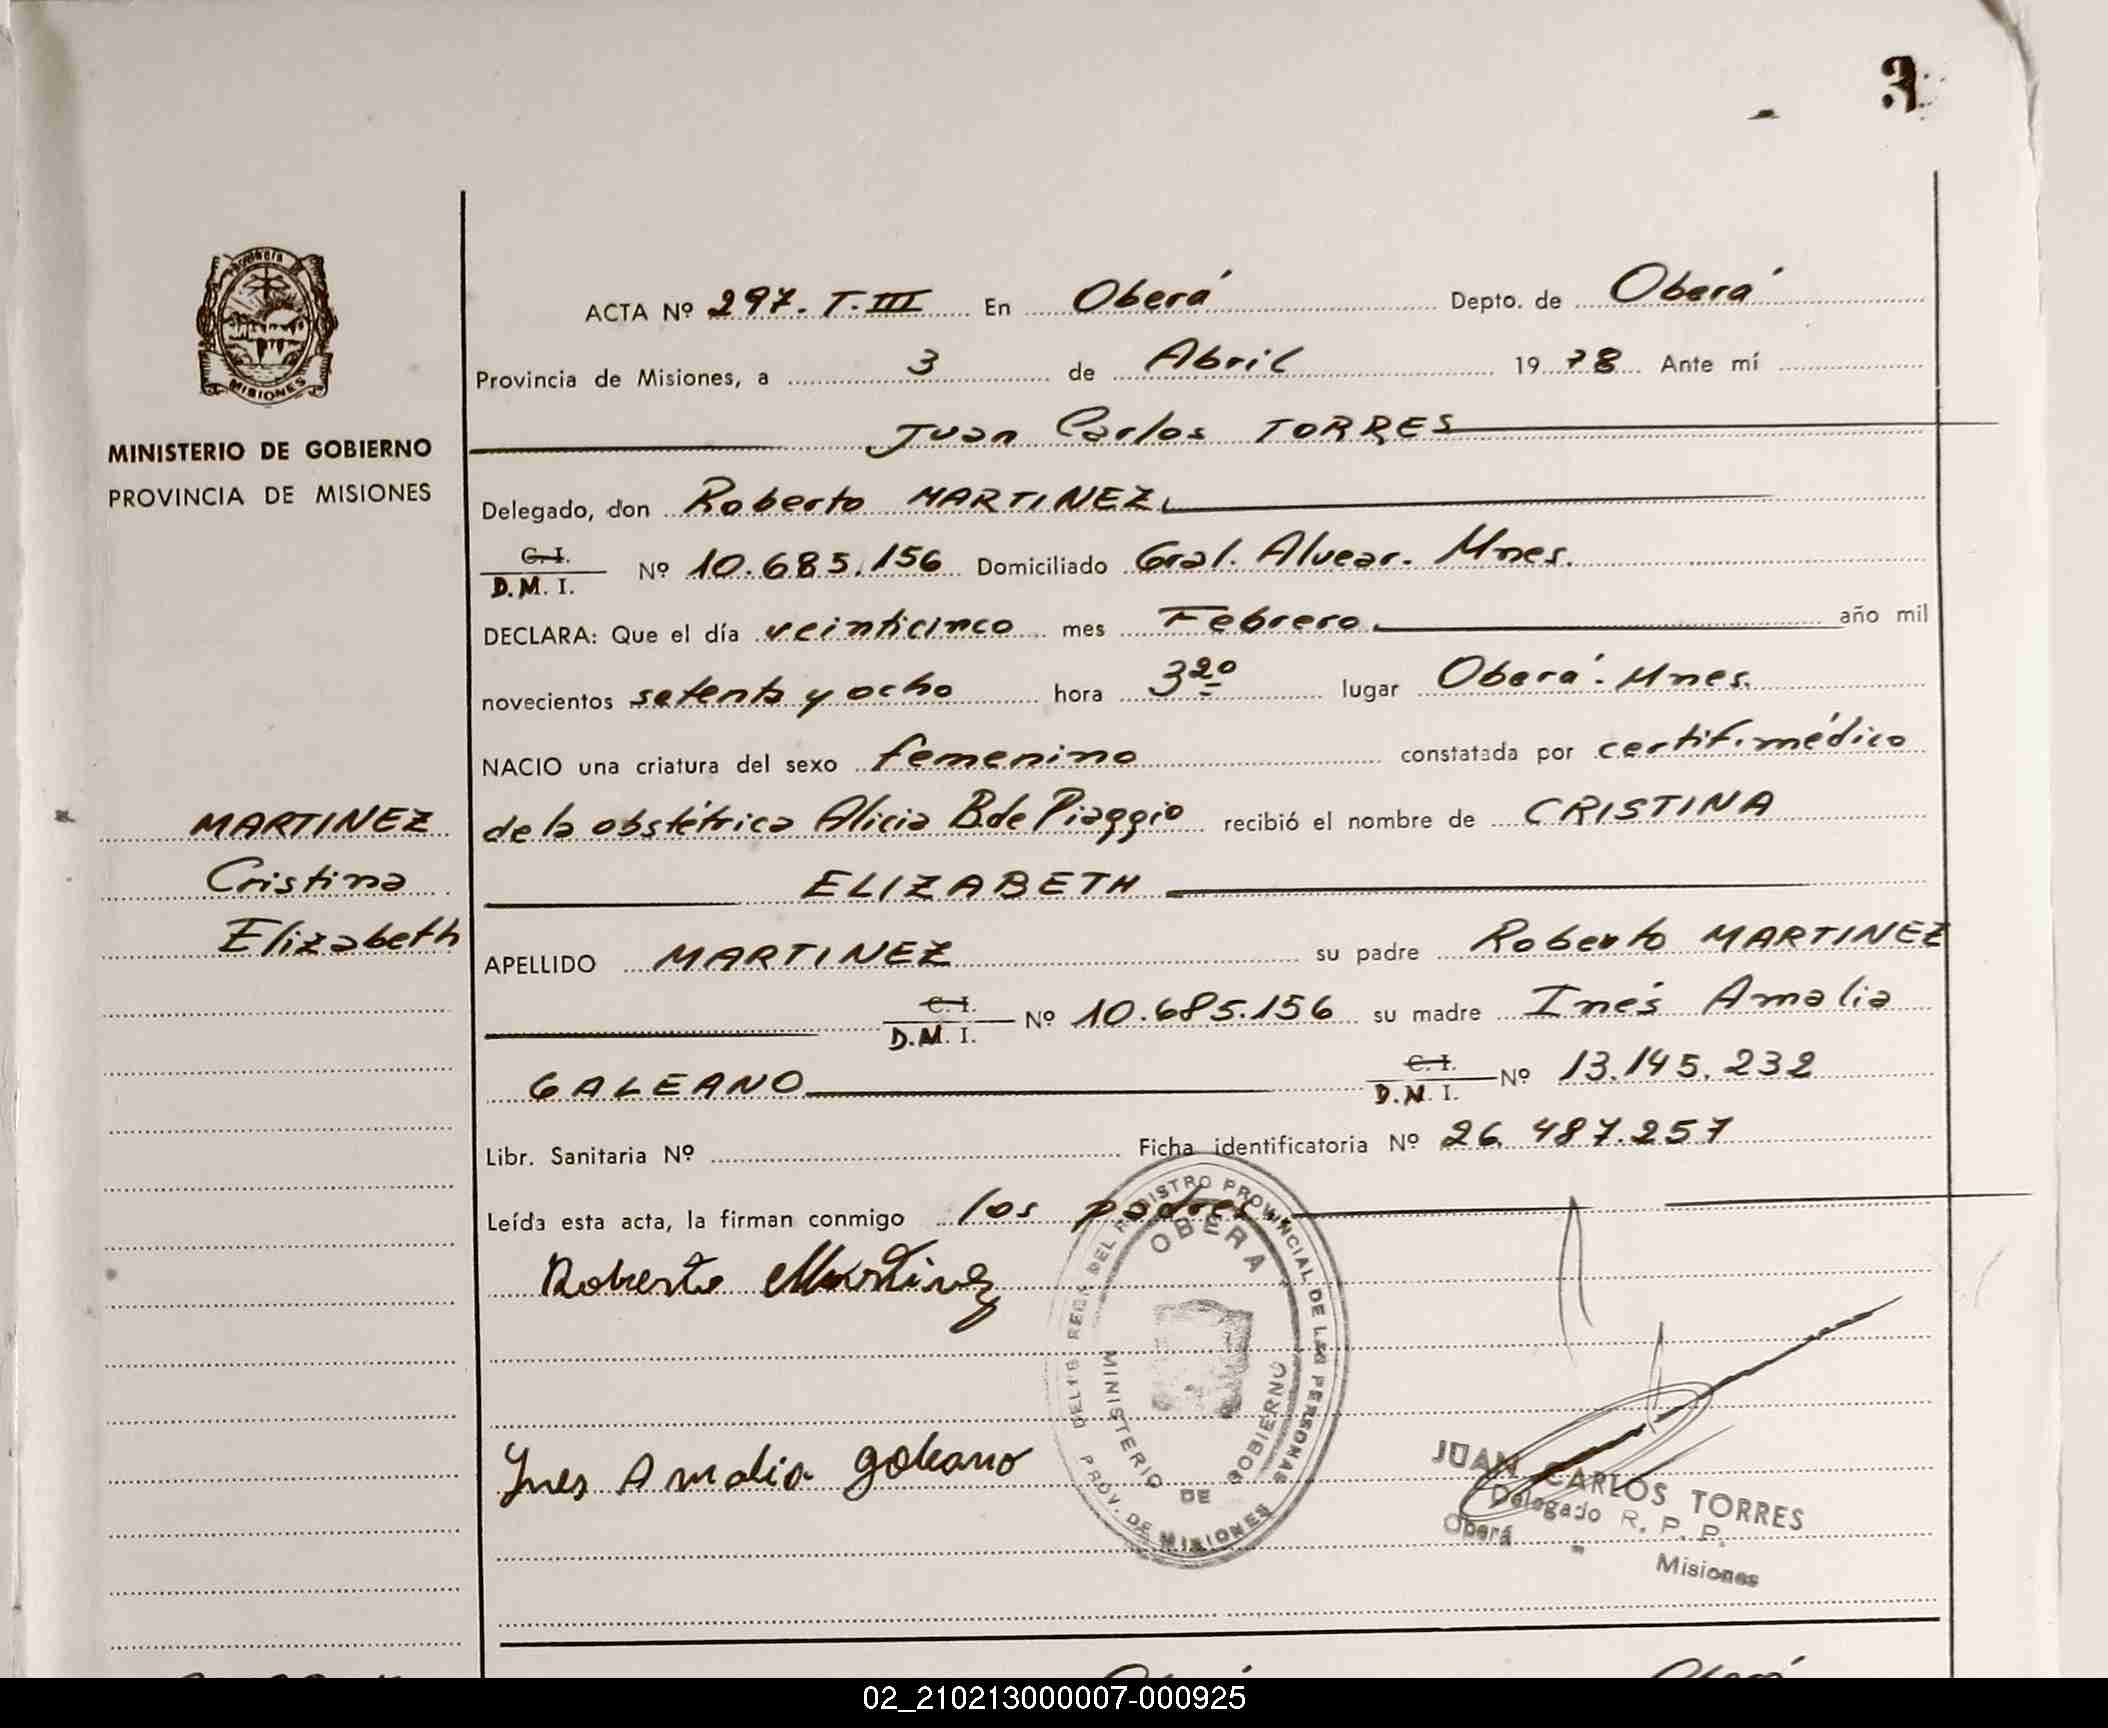 3
MISIONES
MINISTERIO DE GOBIERNO
PROVINCIA DE MISIONES
ACTA Nº 297. T. III En Oberá Depto. de Oberá
Provincia de Misiones, a 3 de Abril 1978 Ante mí
Juan Carlos TORRES
Delegado, don Roberto MARTINEZ
C. I.
D. M. I. Nº 10.685.156 Domiciliado Gral. Alvear. Mnes.
DECLARA: Que el día veinticinco mes Febrero. año mil
novecientos setenta y ocho hora 3 20 lugar Oberá. Mnes.
NACIO una criatura del sexo femenino constatada por certif. médico
MARTINEZ
de la obstétrica Alicia B. de Piaggio recibió el nombre de CRISTINA
Cristina
ELIZABETH
Elizabeth
APELLIDO MARTINEZ su padre Roberto MARTINEZ
C. I.
D. M. I. Nº 10.685.156 su madre Inés Amalia
GALEANO C. I.
D. M. I. Nº 13.145.232
Libr. Sanitaria Nº Ficha identificatoria Nº 26.487.257
Leída esta acta, la firman conmigo los padres.
Roberto Martinez
OBERA
MINISTERIO DE GOBIERNO
PROV. DE MISIONES
REGISTRO PROVINCIAL DE LAS PERSONAS
Ines Amalia galeano
JUAN CARLOS TORRES
Delegado R. P. P.
Oberá - Misiones
02_210213000007-000925